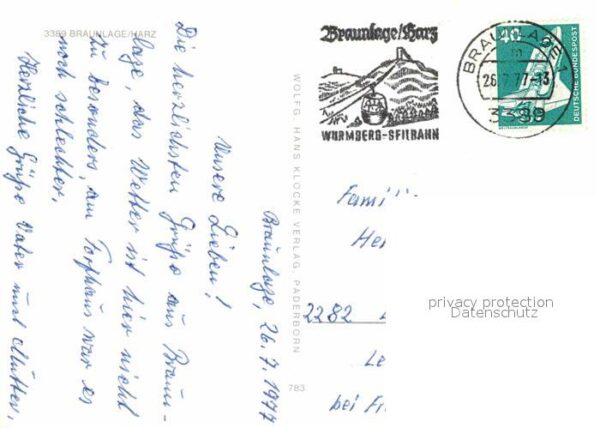 3389 BRAUNLAGE/HARZ
Braunlage, 26.7.1977
Unsere Lieben!
Die herzlichsten Grüße aus Braun-
lage, das Wetter ist hier nicht
so besonders, am Torfhaus war es
noch schlechter.
Herzliche Grüße Vater und Mutter.
WOLFG. HANS KLOCKE VERLAG, PADERBORN
783
Braunlage/Harz
WURMBERG-SEILBAHN
BRAUNLAGE 1
m
26.7.77-13
3389
40
DEUTSCHE BUNDESPOST
Fami
He
2282
Le
bei Fr
privacy protection
Datenschutz